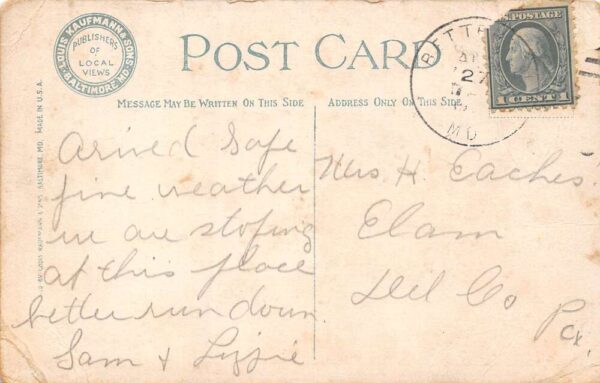 LOUIS KAUFMANN & SONS
BALTIMORE, MD.
PUBLISHERS
OF
LOCAL
VIEWS
POST CARD
MESSAGE MAY BE WRITTEN ON THIS SIDE
ADDRESS ONLY ON THIS SIDE
U.S. POSTAGE
1 CENT 1
BETTE
27
MD
Arived Safe
fine weather
we are stoping
at this place
better run down
Sam & Lizzie
Mrs H. Eaches.
Elam
Del Co
Pa.
BALTIMORE, MD. MADE IN U.S.A.